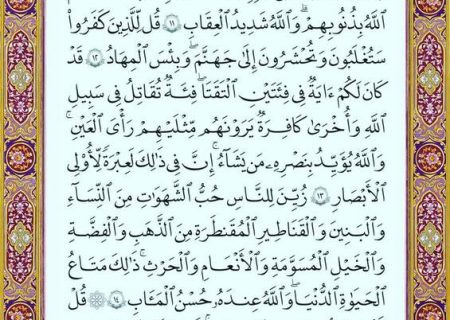 ٱللَّهُ بِذُنُوبِهِمْ ۗ وَٱللَّهُ شَدِيدُ ٱلْعِقَابِ ١١ قُل لِّلَّذِينَ كَفَرُوا۟
سَتُغْلَبُونَ وَتُحْشَرُونَ إِلَىٰ جَهَنَّمَ ۚ وَبِئْسَ ٱلْمِهَادُ ١٢ قَدْ
كَانَ لَكُمْ ءَايَةٌ فِى فِئَتَيْنِ ٱلْتَقَتَا ۖ فِئَةٌ تُقَٰتِلُ فِى سَبِيلِ
ٱللَّهِ وَأُخْرَىٰ كَافِرَةٌ يَرَوْنَهُم مِّثْلَيْهِمْ رَأْىَ ٱلْعَيْنِ ۚ
وَٱللَّهُ يُؤَيِّدُ بِنَصْرِهِۦ مَن يَشَآءُ ۗ إِنَّ فِى ذَٰلِكَ لَعِبْرَةً لِّأُو۟لِى
ٱلْأَبْصَٰرِ ١٣ زُيِّنَ لِلنَّاسِ حُبُّ ٱلشَّهَوَٰتِ مِنَ ٱلنِّسَآءِ
وَٱلْبَنِينَ وَٱلْقَنَٰطِيرِ ٱلْمُقَنطَرَةِ مِنَ ٱلذَّهَبِ وَٱلْفِضَّةِ
وَٱلْخَيْلِ ٱلْمُسَوَّمَةِ وَٱلْأَنْعَٰمِ وَٱلْحَرْثِ ۗ ذَٰلِكَ مَتَٰعُ
ٱلْحَيَوٰةِ ٱلدُّنْيَا ۖ وَٱللَّهُ عِندَهُۥ حُسْنُ ٱلْمَـَٔابِ ١٤ ۞ قُلْ